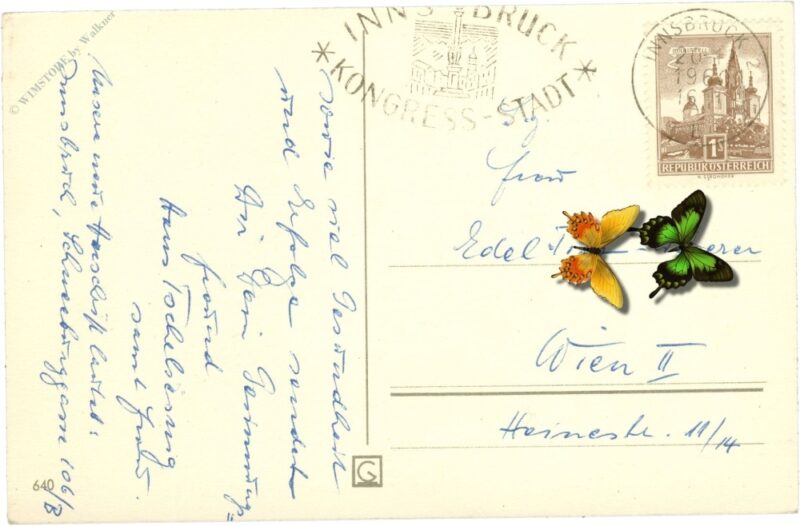 © WIMSTORE by Walkner
INNSBRUCK
* KONGRESS-STADT *
INNSBRUCK 2
20
196
16
1S
REPUBLIK ÖSTERREICH
sowie viel Gesundheit
und Erfolge sendet
Dir Dein Gesinnungs=
freund
Hans Tschelesnig
samt Frau.
Unsere neue Anschrift lautet:
Innsbruck, Schneeburggasse 106/B
Frau
Edel
Wien II
Heinestr. 11/14
640
G